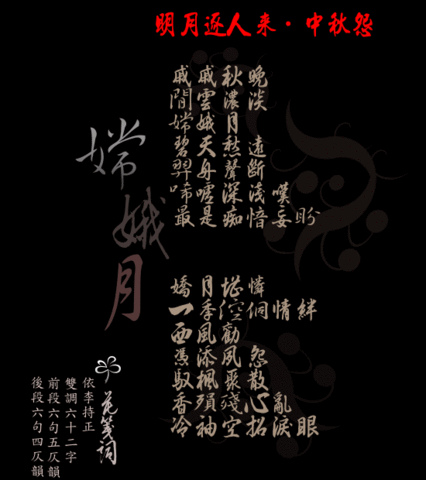 明月逐人来·中秋怨
嫦娥月
戚戚秋晚
閒雲濃淡
嫦娥月
碧天愁遠
羿舟聲斷
啼嘘深淺嘆
最是痴愔妄盼
嬌月堪憐
一季倥侗情絆
西風勸
憑添夙怨
馭楓聚散
香殞殘心亂
冷袖空招淚眼
花箋詞
依李持正
雙調六十二字
前段六句五仄韻
後段六句四仄韻